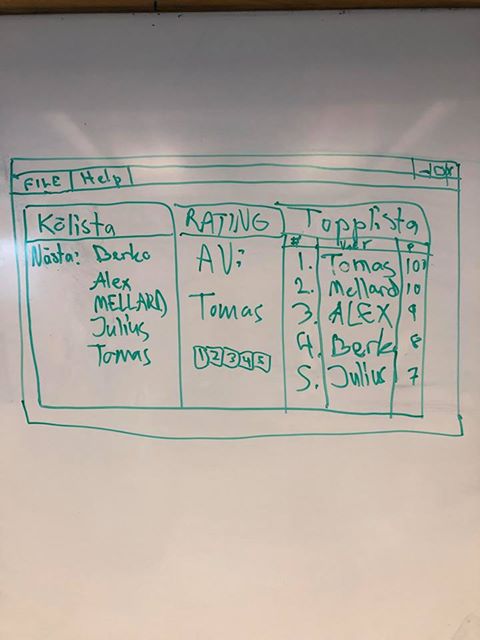 FILE Help
Kölista
Nästa: Berko
Alex
MELLARD
Julius
Tomas
RATING
AV:
Tomas
1 2 3 4 5
Topplista
#
1. Tomas
2. Mellard 10
3. ALEX 9
4. Berk 8
5. Julius 7